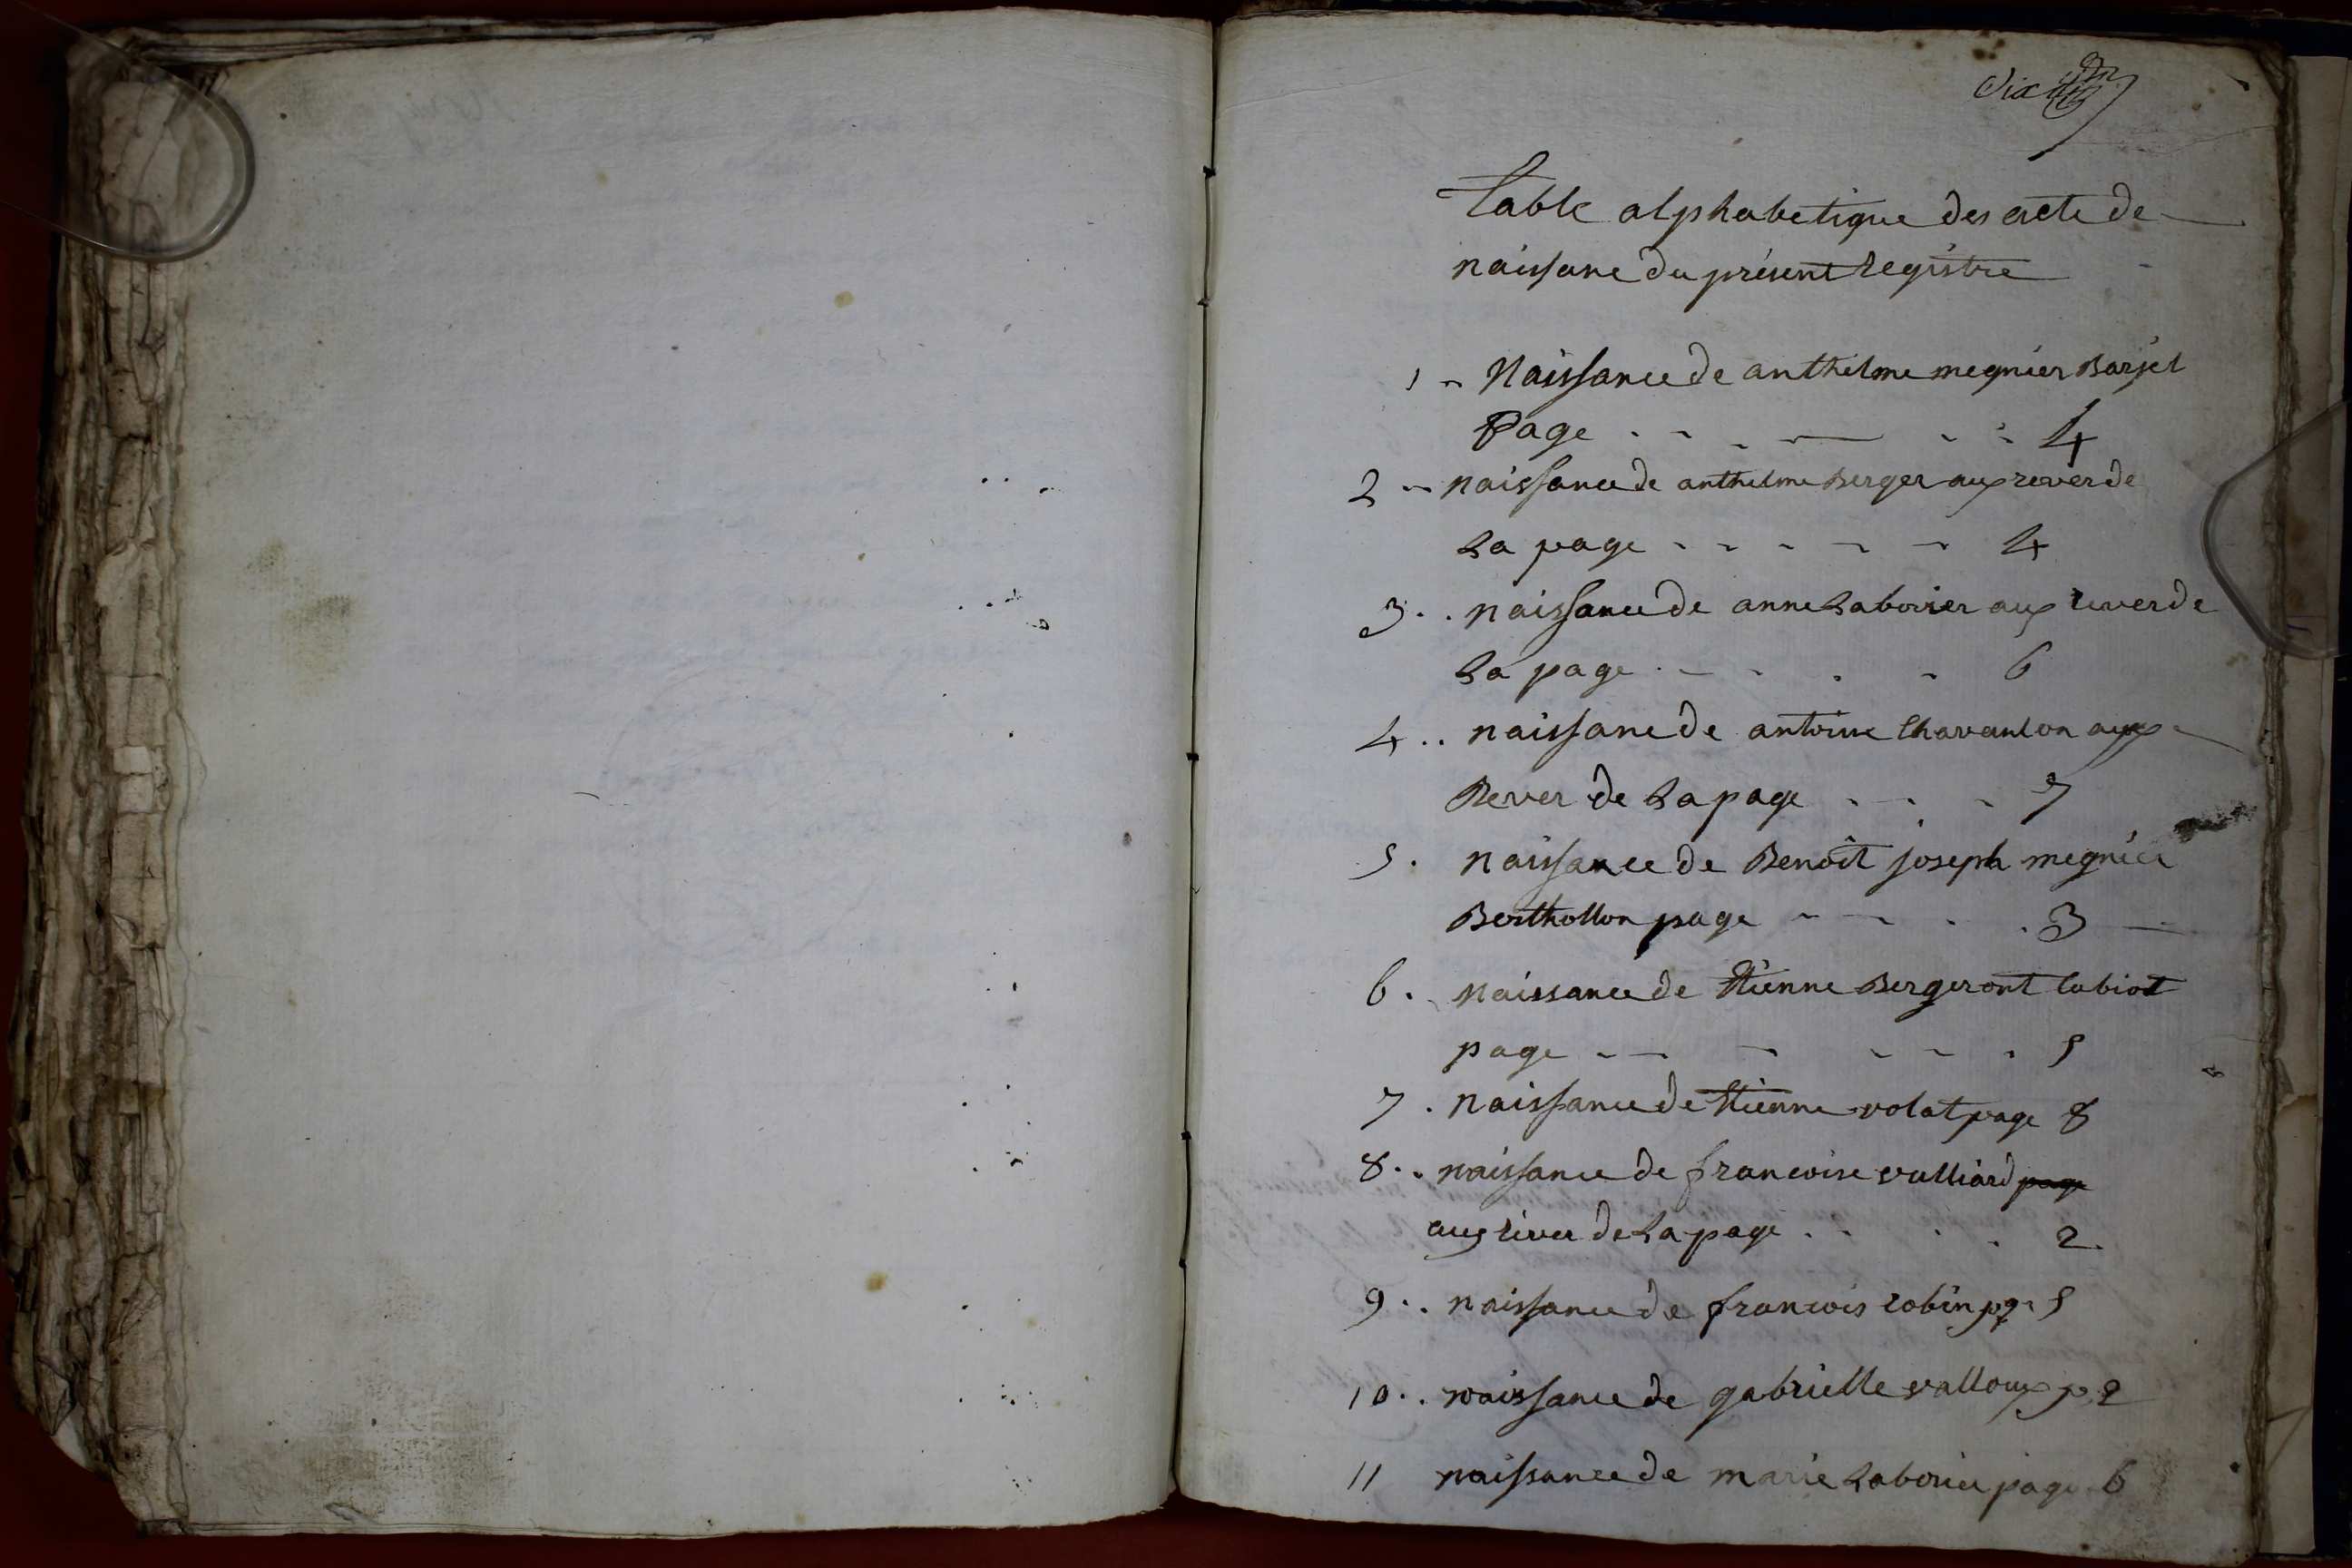 Dix
table alphabetique des acte de
naissane du présent registre
1 naissance de anthelme megnier Barjel
Page 4
2 naissance de anthelme Berger aux rever de
La page 4
3 naissance de anne Laborier aux rever de
La page 6
4 naissane de antoine Chavanlon aux
Rever de La page 7
5 naissance de Benoît joseph megnier
Berthollon page 3
6 naissance de Etienne Bergeront labiot
page 5
7 naissance de Etienne volat page 8
8 naissance de francoise vulliard page
aux river de La page 2
9 naissance de francois robin pge 5
10 naissance de gabrielle valloux p. 2
11 naissance de marie Laborier page 6